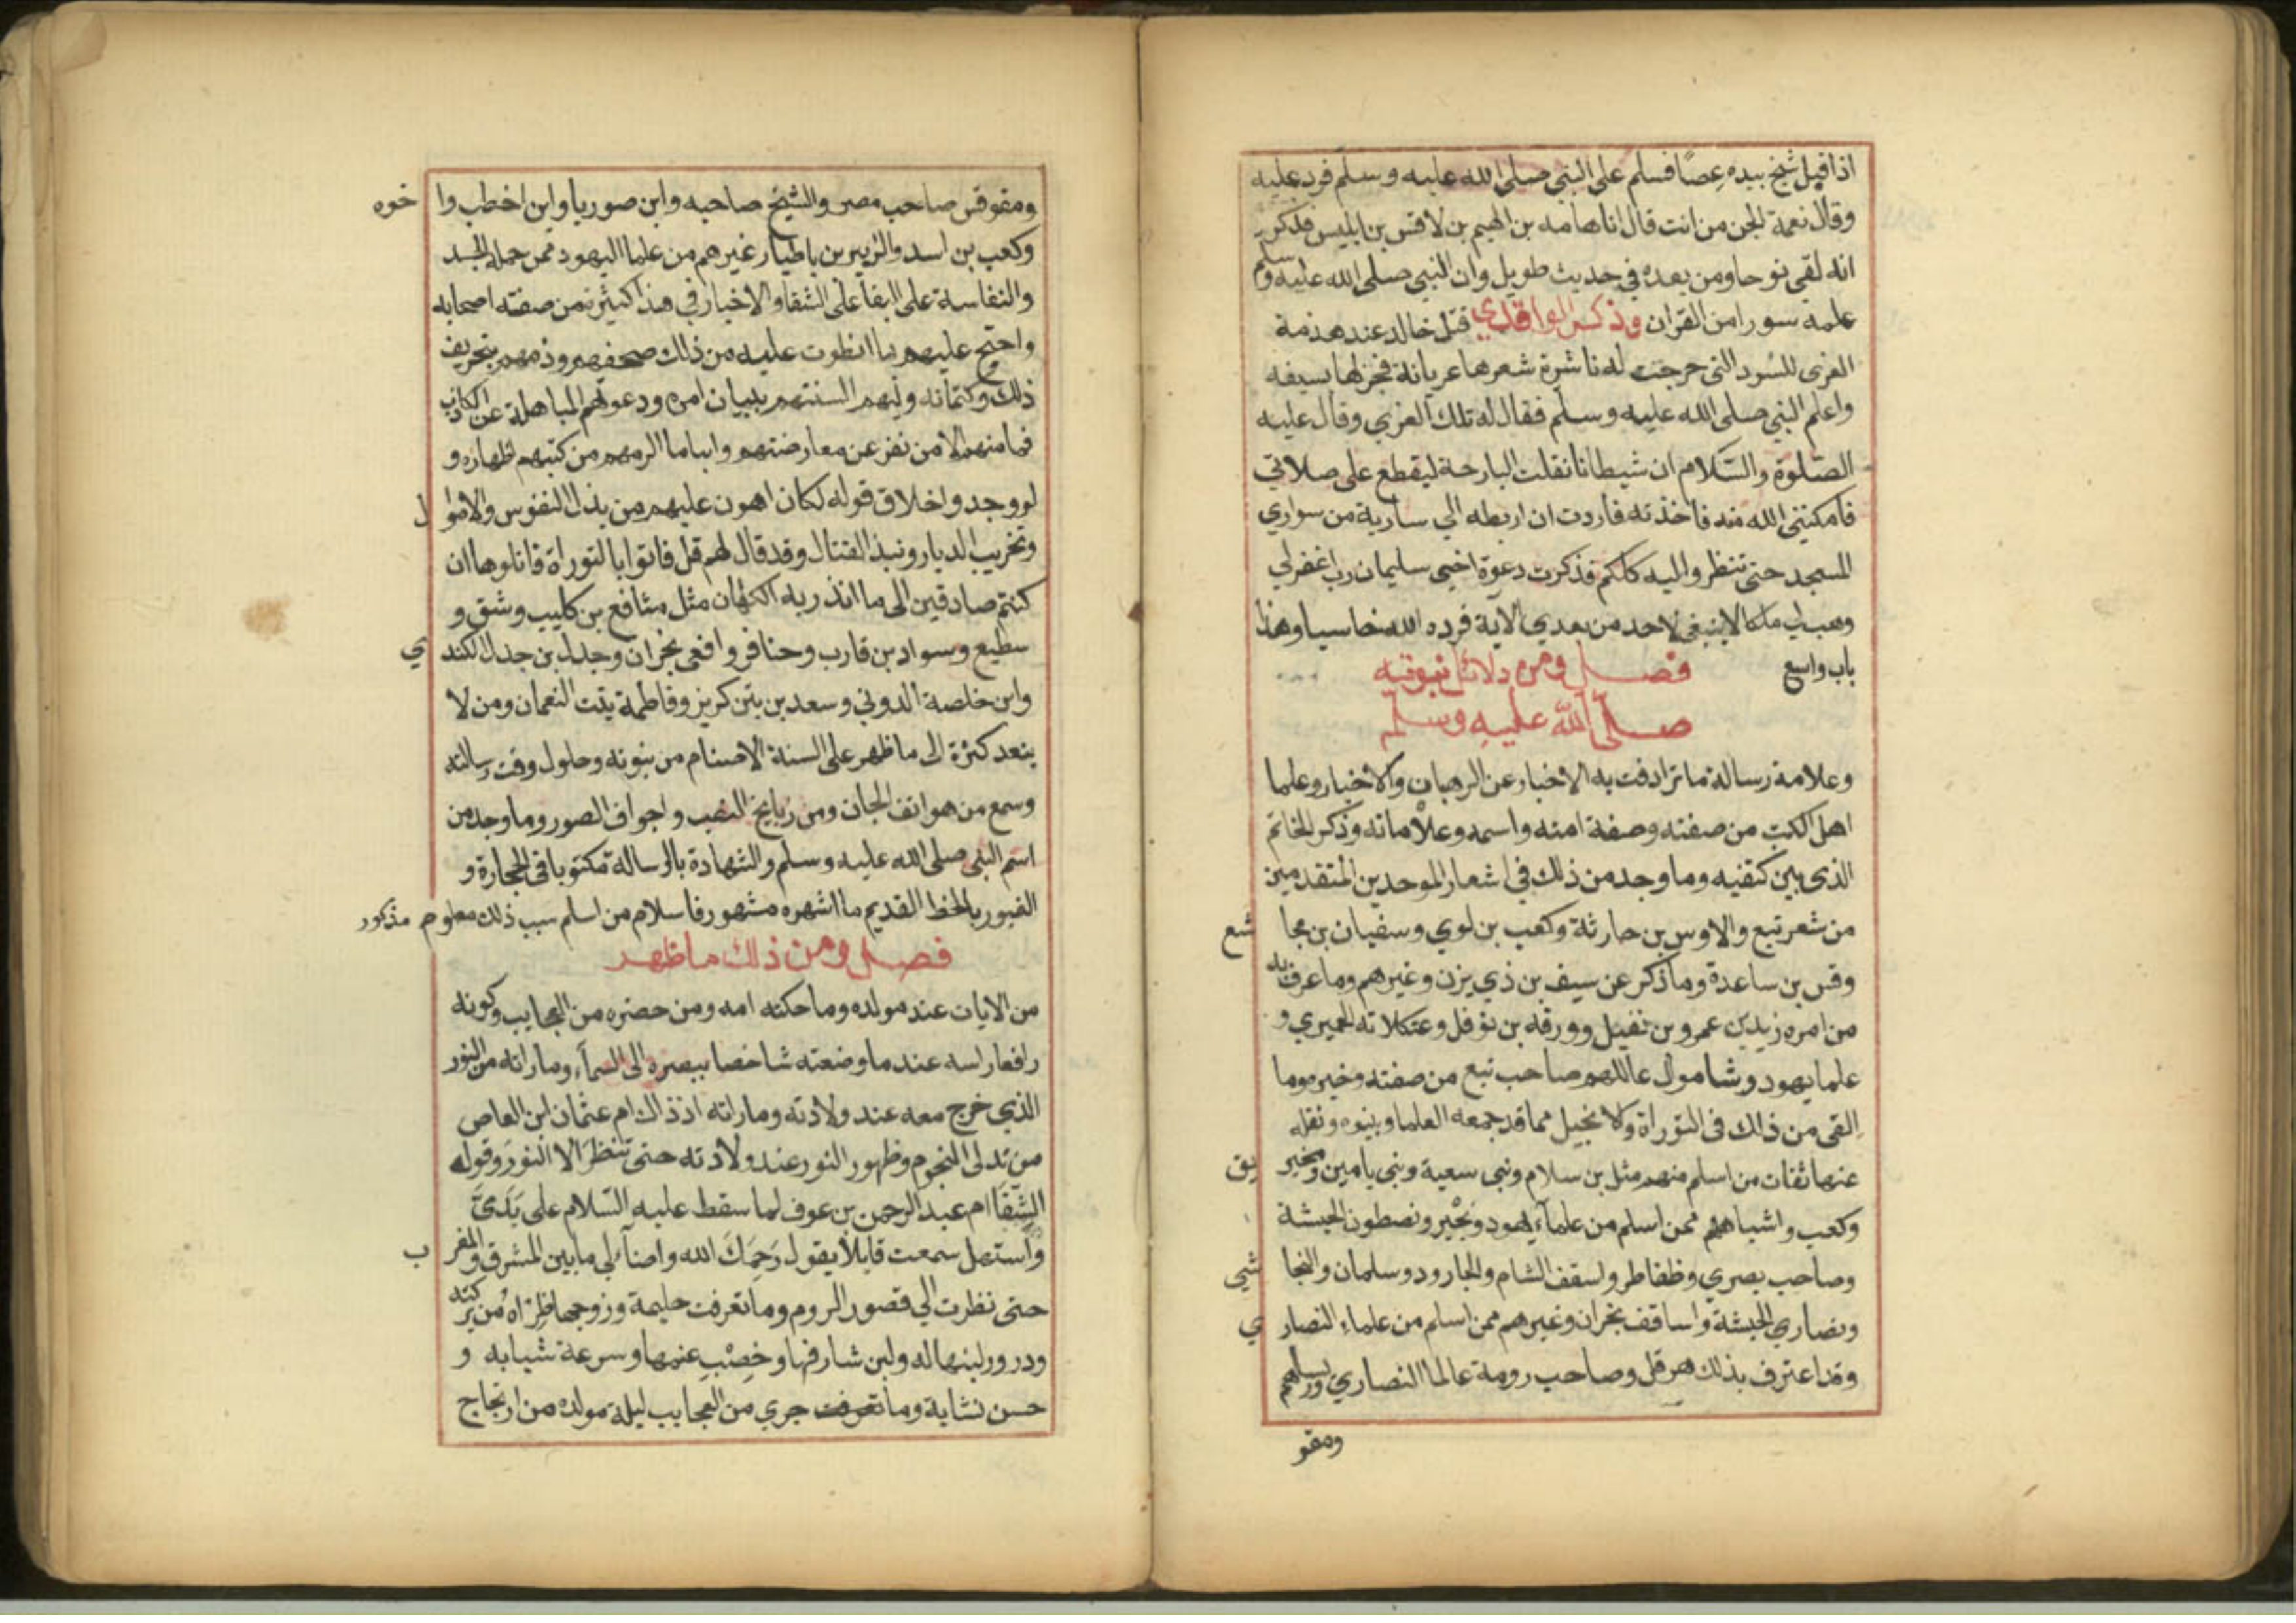 اذا قبل شيخ بيده عصًا فسلم على النبي صلى الله عليه وسلم فرد عليه
وقال نعمة الجن من انت قال انا هامه بن الهيم بن لاقس بن ابليس فذكر
انه لقى نوحا ومن بعده في حديث طويل وان النبي صلى الله عليه وسلم
علمه سورا من القران وذكر الواقدي قتل خالد عند هدمة
العزى للسود التى خرجت له ناشرة شعرها عريانة فجزلها بسيفه
واعلم النبي صلى الله عليه وسلم فقال له تلك العزي وقال عليه
الصلوة والسّلام ان شيطانا تفلت البارحة ليقطع على صلاتي
فامكنني الله منه فاخذته فاردت ان اربطه الي سارية من سواري
المسجد حتى تنظروا اليه كلكم فذكرت دعوة اخي سليمان رب اغفرلي
وهب لي ملكا لا ينبغي لاحد من بعدي الآية فرده الله خاسيا وهذا
باب واسع فصل ومن دلائل نبوته
صلّى الله عليه وسلم
وعلامة رسالة ما ترادفت به الاخبار عن الرهبان والاخبار وعلما
اهل الكتب من صفته وصفة امته واسمه وعلاماته وذكر الخاتم
الذى بين كتفيه وما وجد من ذلك في اشعار الموحدين المتقدمين
من شعر تبع والاوس بن حارثة وكعب بن لوي وسفيان بن مجاشع
وقس بن ساعدة وما ذكر عن سيف بن ذي يزن وغيرهم وما عرف به
من امره زيد بن عمرو بن نفيل وورقه بن نوفل وعثكلانه الحميري و
علما يهود وشامول عاللهم صاحب تبع من صفته وخبره وما
القى من ذلك فى التوراة والانجيل مما قد جمعه العلما وبينوه ونقله
عنهما ثقات من اسلم منهم مثل بن سلام وبني سعية وبني يامين ومخيريق
وكعب واشباههم ممن اسلم من علماء يهود وبحير ونصطور الحبشة
وصاحب بصري وضغاطر واسقف الشام والجارود وسلمان والنجاشي
ونصاري الحبشة واساقف نجران وغيرهم ممن اسلم من علماء النصاري
وقد اعترف بذلك هرقل وصاحب رومة عالما النصاري ورييساهم
ومقو
ومقوقس صاحب مصر والشيخ صاحبه وابن صوريا وابن اخطب واخوه
وكعب بن اسد والزبير بن باطيا وغيرهم من علما اليهود ممن حمله الحسد
والنفاسة على البقا على الشقا والاخبار في هذا كثيرة من صفته اصحابه
واحتج عليهم بما انطوت عليه من ذلك صحفهم وذمهم بتحريف
ذلك وكتمانه وليهم السنتهم ببيان امره ودعوتهم المباهلة عن الكاذب
فما منهم الا من نفر عن معارضتهم وابا ما الزمهم من كتبهم اظهاره و
لو وجدوا خلاق قوله لكان اهون عليهم من بذل النفوس والاموال
وتخريب الديار ونبذ القتال وقد قال لهم قل فاتوا بالتوراة فاتلوها ان
كنتم صادقين الى ما انذر به الكهان مثل مثافع بن كليب وشق و
سطيح وسواد بن قارب وخنافر وافعى نجران وجدل بن جدل الكندي
وابن خلصة الدوني وسعد بن بتن كريز وفاطمة بنت النعمان ومن لا
ينعد كثرة الى ما ظهر على السنة الاصنام من نبوته وحلول وقت رسالته
وسمع من هواتف الجان ومن ذبايح النصب واجواف الصور وما وجد من
اسم النبي صلى الله عليه وسلم والشهادة بالرسالة مكتوبا فى الحجارة و
القبور بالخط القديم ما اشهره مشهور فاسلام من اسلم سبب ذلك معلوم مذكور
فصل ومن ذلك ما ظهر
من الايات عند مولده وما حكته امه ومن حضره من العجايب وكونه
رافعا راسه عند ما وضعته شاخصا ببصره الى السمآء وما راته من النور
الذي خرج معه عند ولادته وما راته اذ ذاك ام عثمان ابن العاص
من تدلى النجوم وظهور النور عند ولادته حتى تنظر الا النور وقوله
الشّفا ام عبد الرحمن بن عوف لما سقط عليه السّلام على يَدَىَّ
واستهل سمعت قايلا يقول رَحِمَكَ الله واضآء لي مابين المشرق والمغرب
حتى نظرت الي قصور الروم وما تعرفت حليمة وزوجها ظِئراه من بركته
ودرور لبنها له ولبن شارفها وخِصْبِ غنمها وسرعة شبابه و
حسن نشاية وما تعرفت جري من العجايب ليلة مولده من ارتجاج